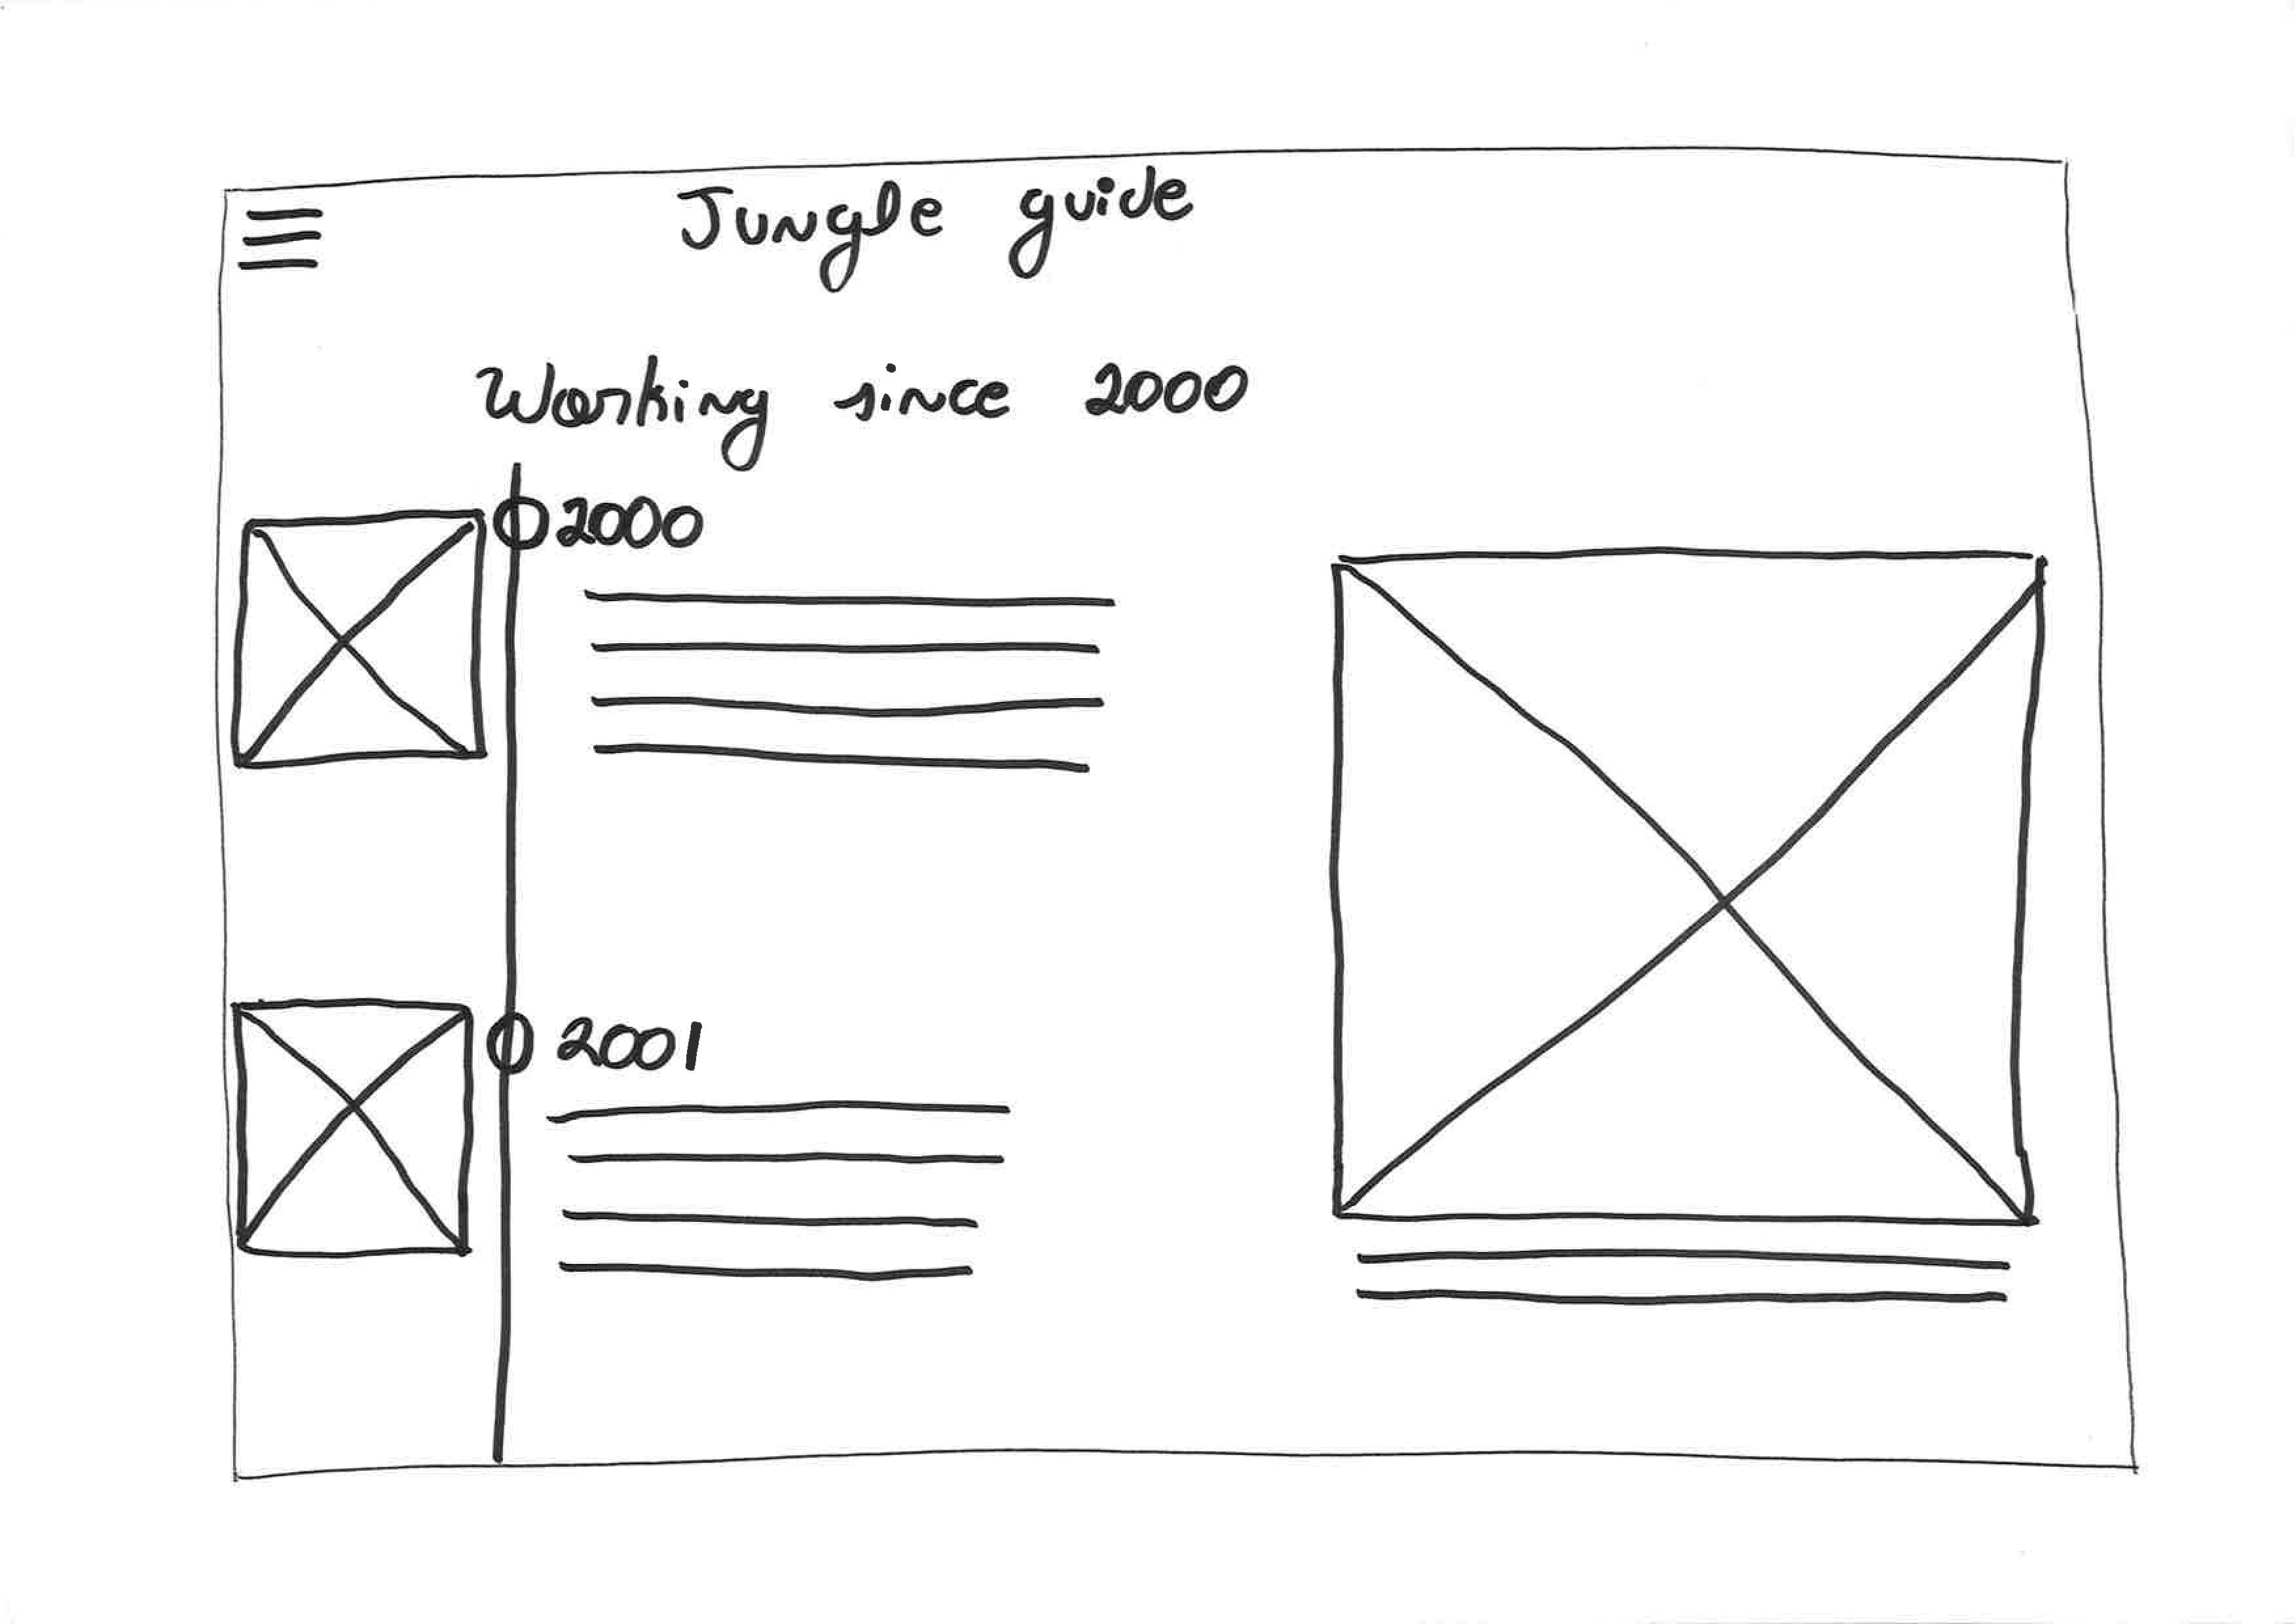 Jungle guide
Working since 2000
2000
2001